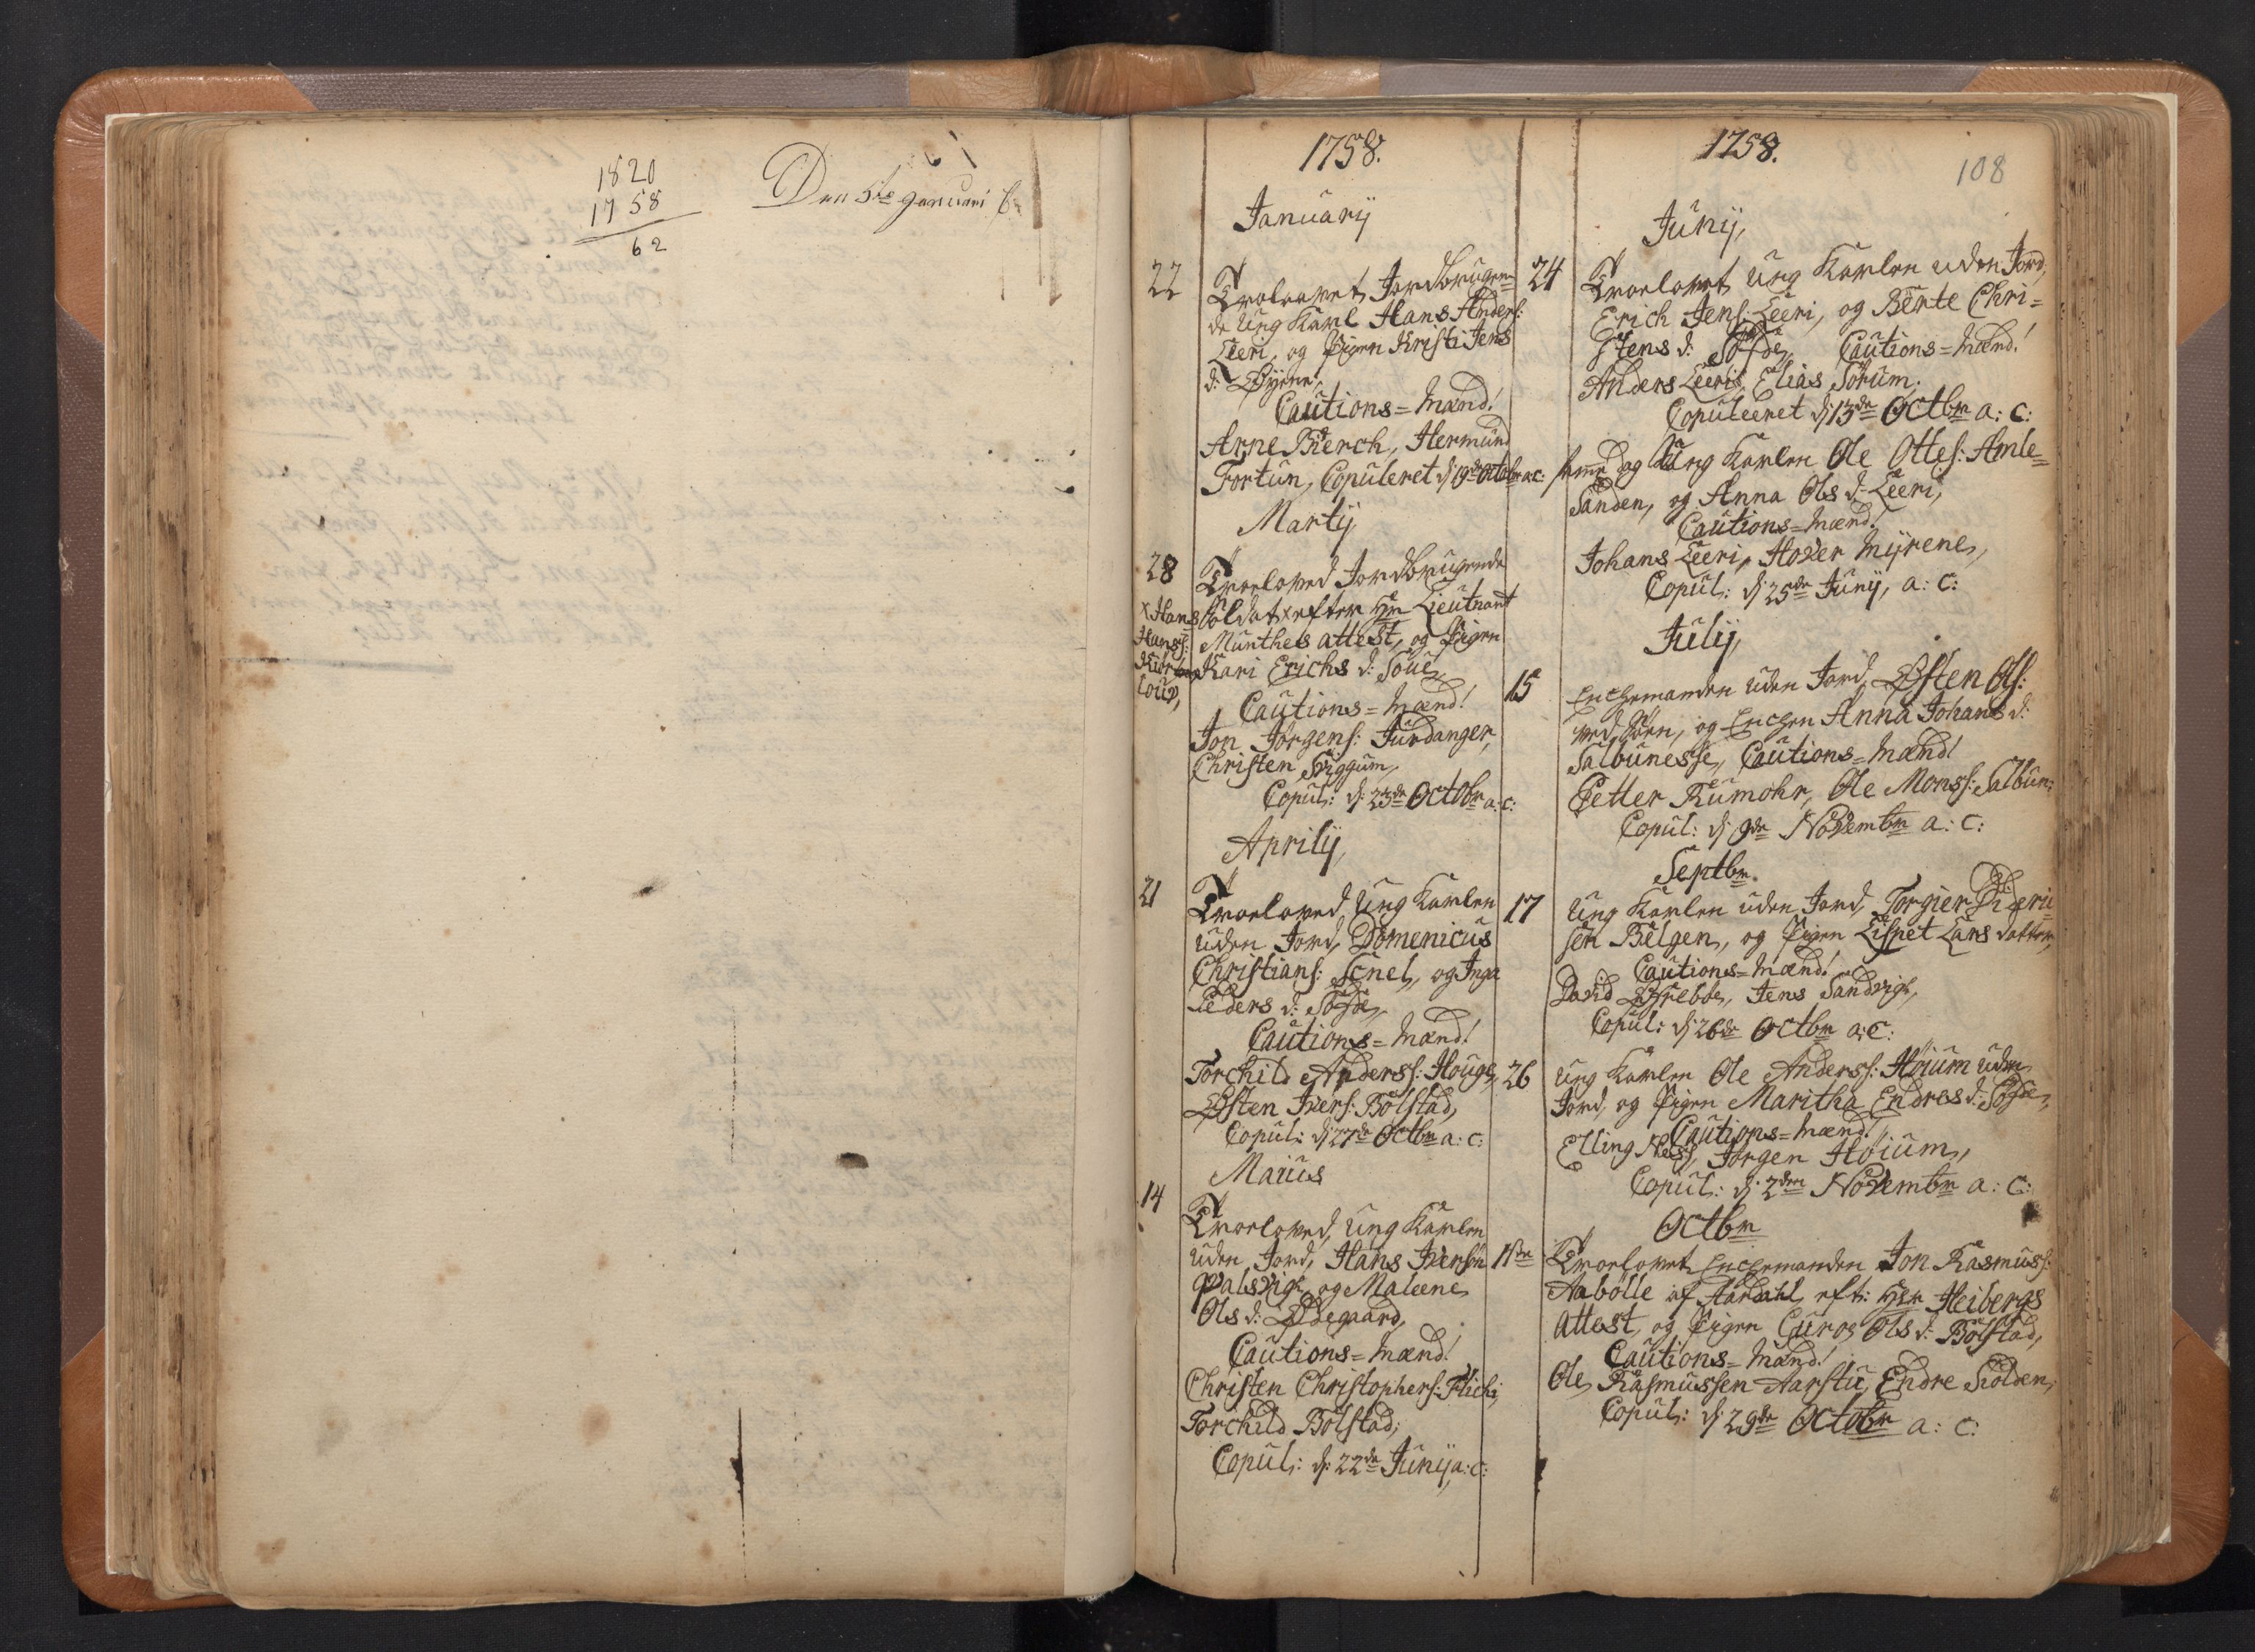 1820
1758
62
Den 5te Januari
1758.
January
22 Troelovet Jordbrugen=
de Ung Karl Hans Anders:
Leeri, og Pigen Kristi Jens
d: Øyene,
Cautions=Mænd!
Arne Bierch, Hermund
Fortun, Copuleret d. 19de Octobr a:c:
Martij
28 Troeloved Jordbrugende
Soldat x efter Hr Lieutnant
x Hans
Hanss:
Munthes attest, og Pigen
Kari Erichs d: Soue
Cautions=Mænd!
Jon Jørgens: Furdanger,
Christen Sviggum,
Copul: d. 23de Octobr a:c:
Aprilij,
21 Troeloved Ung Karlen
uden Jord, Domenicus
Christians: Snel, og Inga
Peders d: Sofde,
Cautions=Mænd!
Torchild Anderss: Houge,
Østen Ivers: Bolstad,
Copul: d. 27de Octbr a:c:
Maius
14 Troeloved, Ung Karlen
uden Jord, Hans Iversøn
Qvalsvigh og Maleene
Ols d: Ødegaard,
Cautions=Mænd!
Christen Christophers: Flichi,
Torchild Bolstad,
Copul: d. 22de Junij a:c:
1758.
108
Junij,
24 Troelovet Ung Karlen uden Jord,
Erich Jens: Leeri, og Bente Chri=
stens d: Sofde, Cautions=Mænd!
Anders Leeri, Elias Sorum.
Copuleeret d. 13de Octbr a:c:
og Ung Karlen Ole Ottes: Amle=
Sanden, og Anna Ols d: Leeri,
Cautions=Mænd!
Johans Leeri, Hover Myrene,
Copul: d. 25de Junij, a:c:
Julij,
15 Enchemanden uden Jord, Østen Ols:
ved Søen, og Enchen Anna Johans d:
Salbunesse, Cautions=Mænd!
Petter Rumohr, Ole Monss: Salbun:
Copul: d. 9de Novembr a:c:
Septbr.
17 Ung Karlen uden Jord, Torgier Dideri=
sen Bělgen, og Pigen Lispet Lars datter,
Cautions=Mænd!
David Øfrebøe, Jens Sandvigh,
Copul: d. 26de Octbr a:c:
26 Ung Karlen Ole Anderss: Høium uden
Jord, og Pigen Maritha Endres d: Sofde,
Cautions=Mænd!
Elling Ness, Jørgen Høium,
Copul: d. 2den Novembr a:c:
Octbr
Troelovet Enchemanden Jon Rasmuss:
Aabølle af Aardahl eft: Hr Heibergs
Attest, og Pigen Guroe Ols d: Bolstad,
Cautions=Mænd!
Ole Rasmussen Aarstu, Endre Siolden,
Copul: d. 29de Octobr a:c: